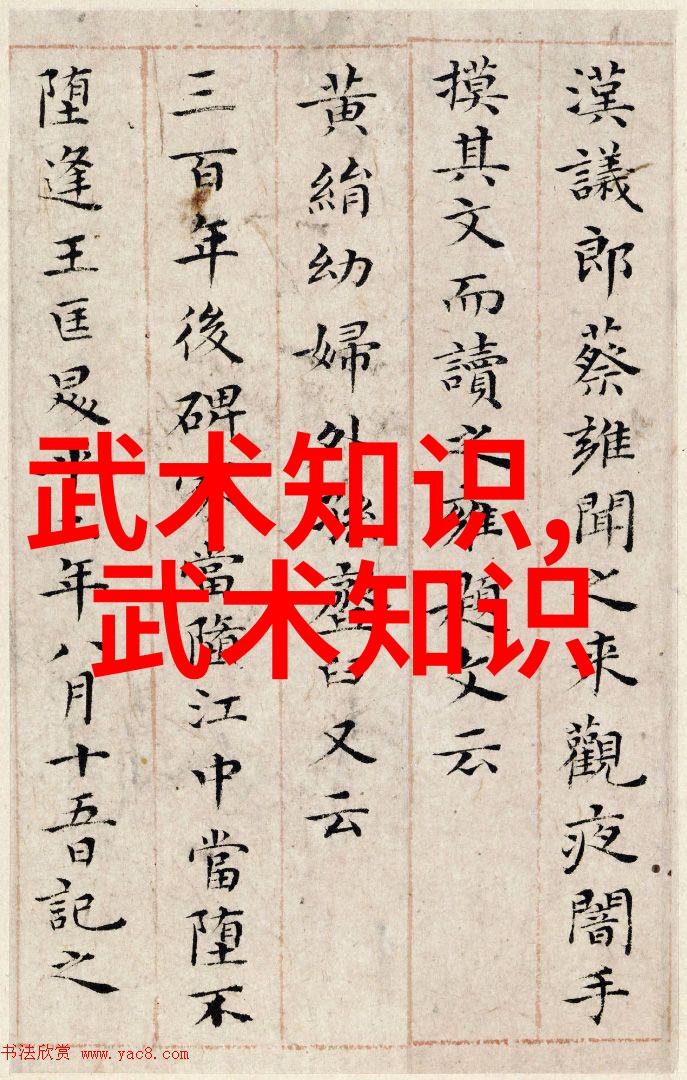 漢議郎蔡雍聞之来觀夜闇手
摸其文而讀之雍題文云
黄絹幼婦外孫臼又云
三百年後碑當墮江中當堕不
堕逢王匡年八月十五日記之
武术知识,
武术知识
书法欣赏 www.yac8.com